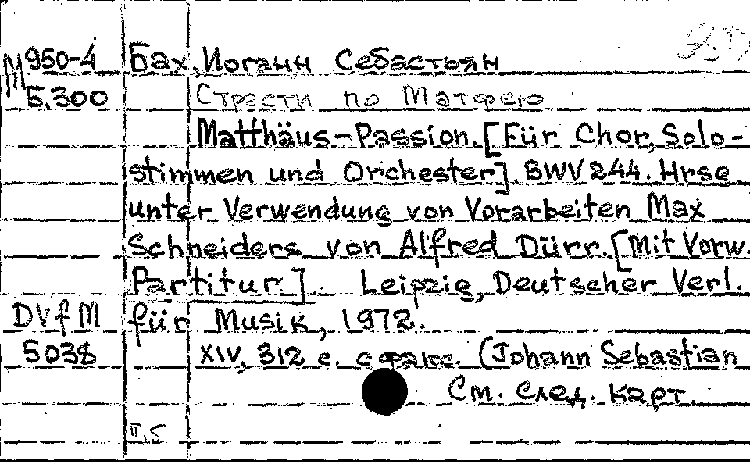 М 950-4 Бах, Иоганн Себастьян
5.300 Страсти по Матфею
Matthäus-Passion. [Für Chor, Solo-
stimmen und Orchester]. BWV 244. Hrsg
unter Verwendung von Vorarbeiten Max
Schneiders von Alfred Dürr. [Mit Vorw.
Partitur]. Leipzig, Deutscher Verl.
DVfM für Musik, 1972.
5038 XIV, 312 с. с факс. (Johann Sebastian
См. след. карт.